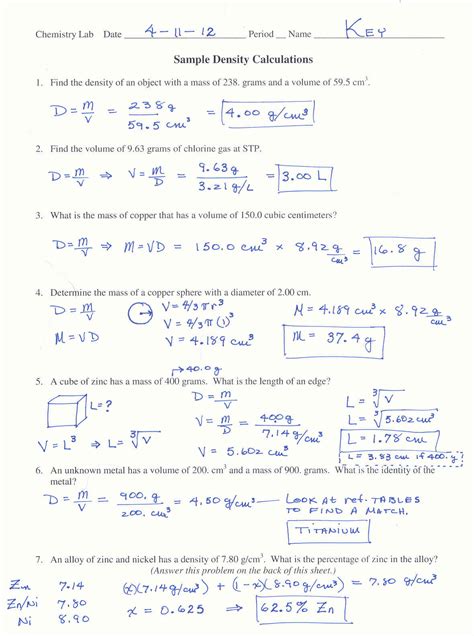 Chemistry Lab Date 4-11-12 Period __ Name KEY
Sample Density Calculations
1. Find the density of an object with a mass of 238. grams and a volume of 59.5 cm³.
D = m/V = 238 g / 59.5 cm³ = 4.00 g/cm³
2. Find the volume of 9.63 grams of chlorine gas at STP.
D = m/V ⇒ V = m/D = 9.63 g / 3.21 g/L = 3.00 L
3. What is the mass of copper that has a volume of 150.0 cubic centimeters?
D = m/V ⇒ M = VD = 150.0 cm³ × 8.92 g/cm³ = 16.8 g
4. Determine the mass of a copper sphere with a diameter of 2.00 cm.
D = m/V V = 4/3 π r³ M = 4.189 cm³ × 8.92 g/cm³
V = 4/3 π (1)³
M = VD V = 4.189 cm³ M = 37.4 g
→ 40.0 g
5. A cube of zinc has a mass of 400 grams. What is the length of an edge?
L = ? D = m/V L = ³√V
V = m/D = 400 g / 7.14 g/cm³ L = ³√5.602 cm³
V = L³ ⇒ L = ³√V V = 5.602 cm³ L = 1.78 cm
L = 3.83 cm if 400. g
6. An unknown metal has a volume of 200. cm³ and a mass of 900. grams. What is the identity of the
metal?
D = m/V = 900. g / 200. cm³ = 4.50 g/cm³ LOOK AT ref. TABLES
TO FIND A MATCH.
TITANIUM
7. An alloy of zinc and nickel has a density of 7.80 g/cm³. What is the percentage of zinc in the alloy?
(Answer this problem on the back of this sheet.)
Zn 7.14 (x)(7.14 g/cm³) + (1-x)(8.90 g/cm³) = 7.80 g/cm³
Zn/Ni 7.80 x = 0.625 ⇒ 62.5% Zn
Ni 8.90